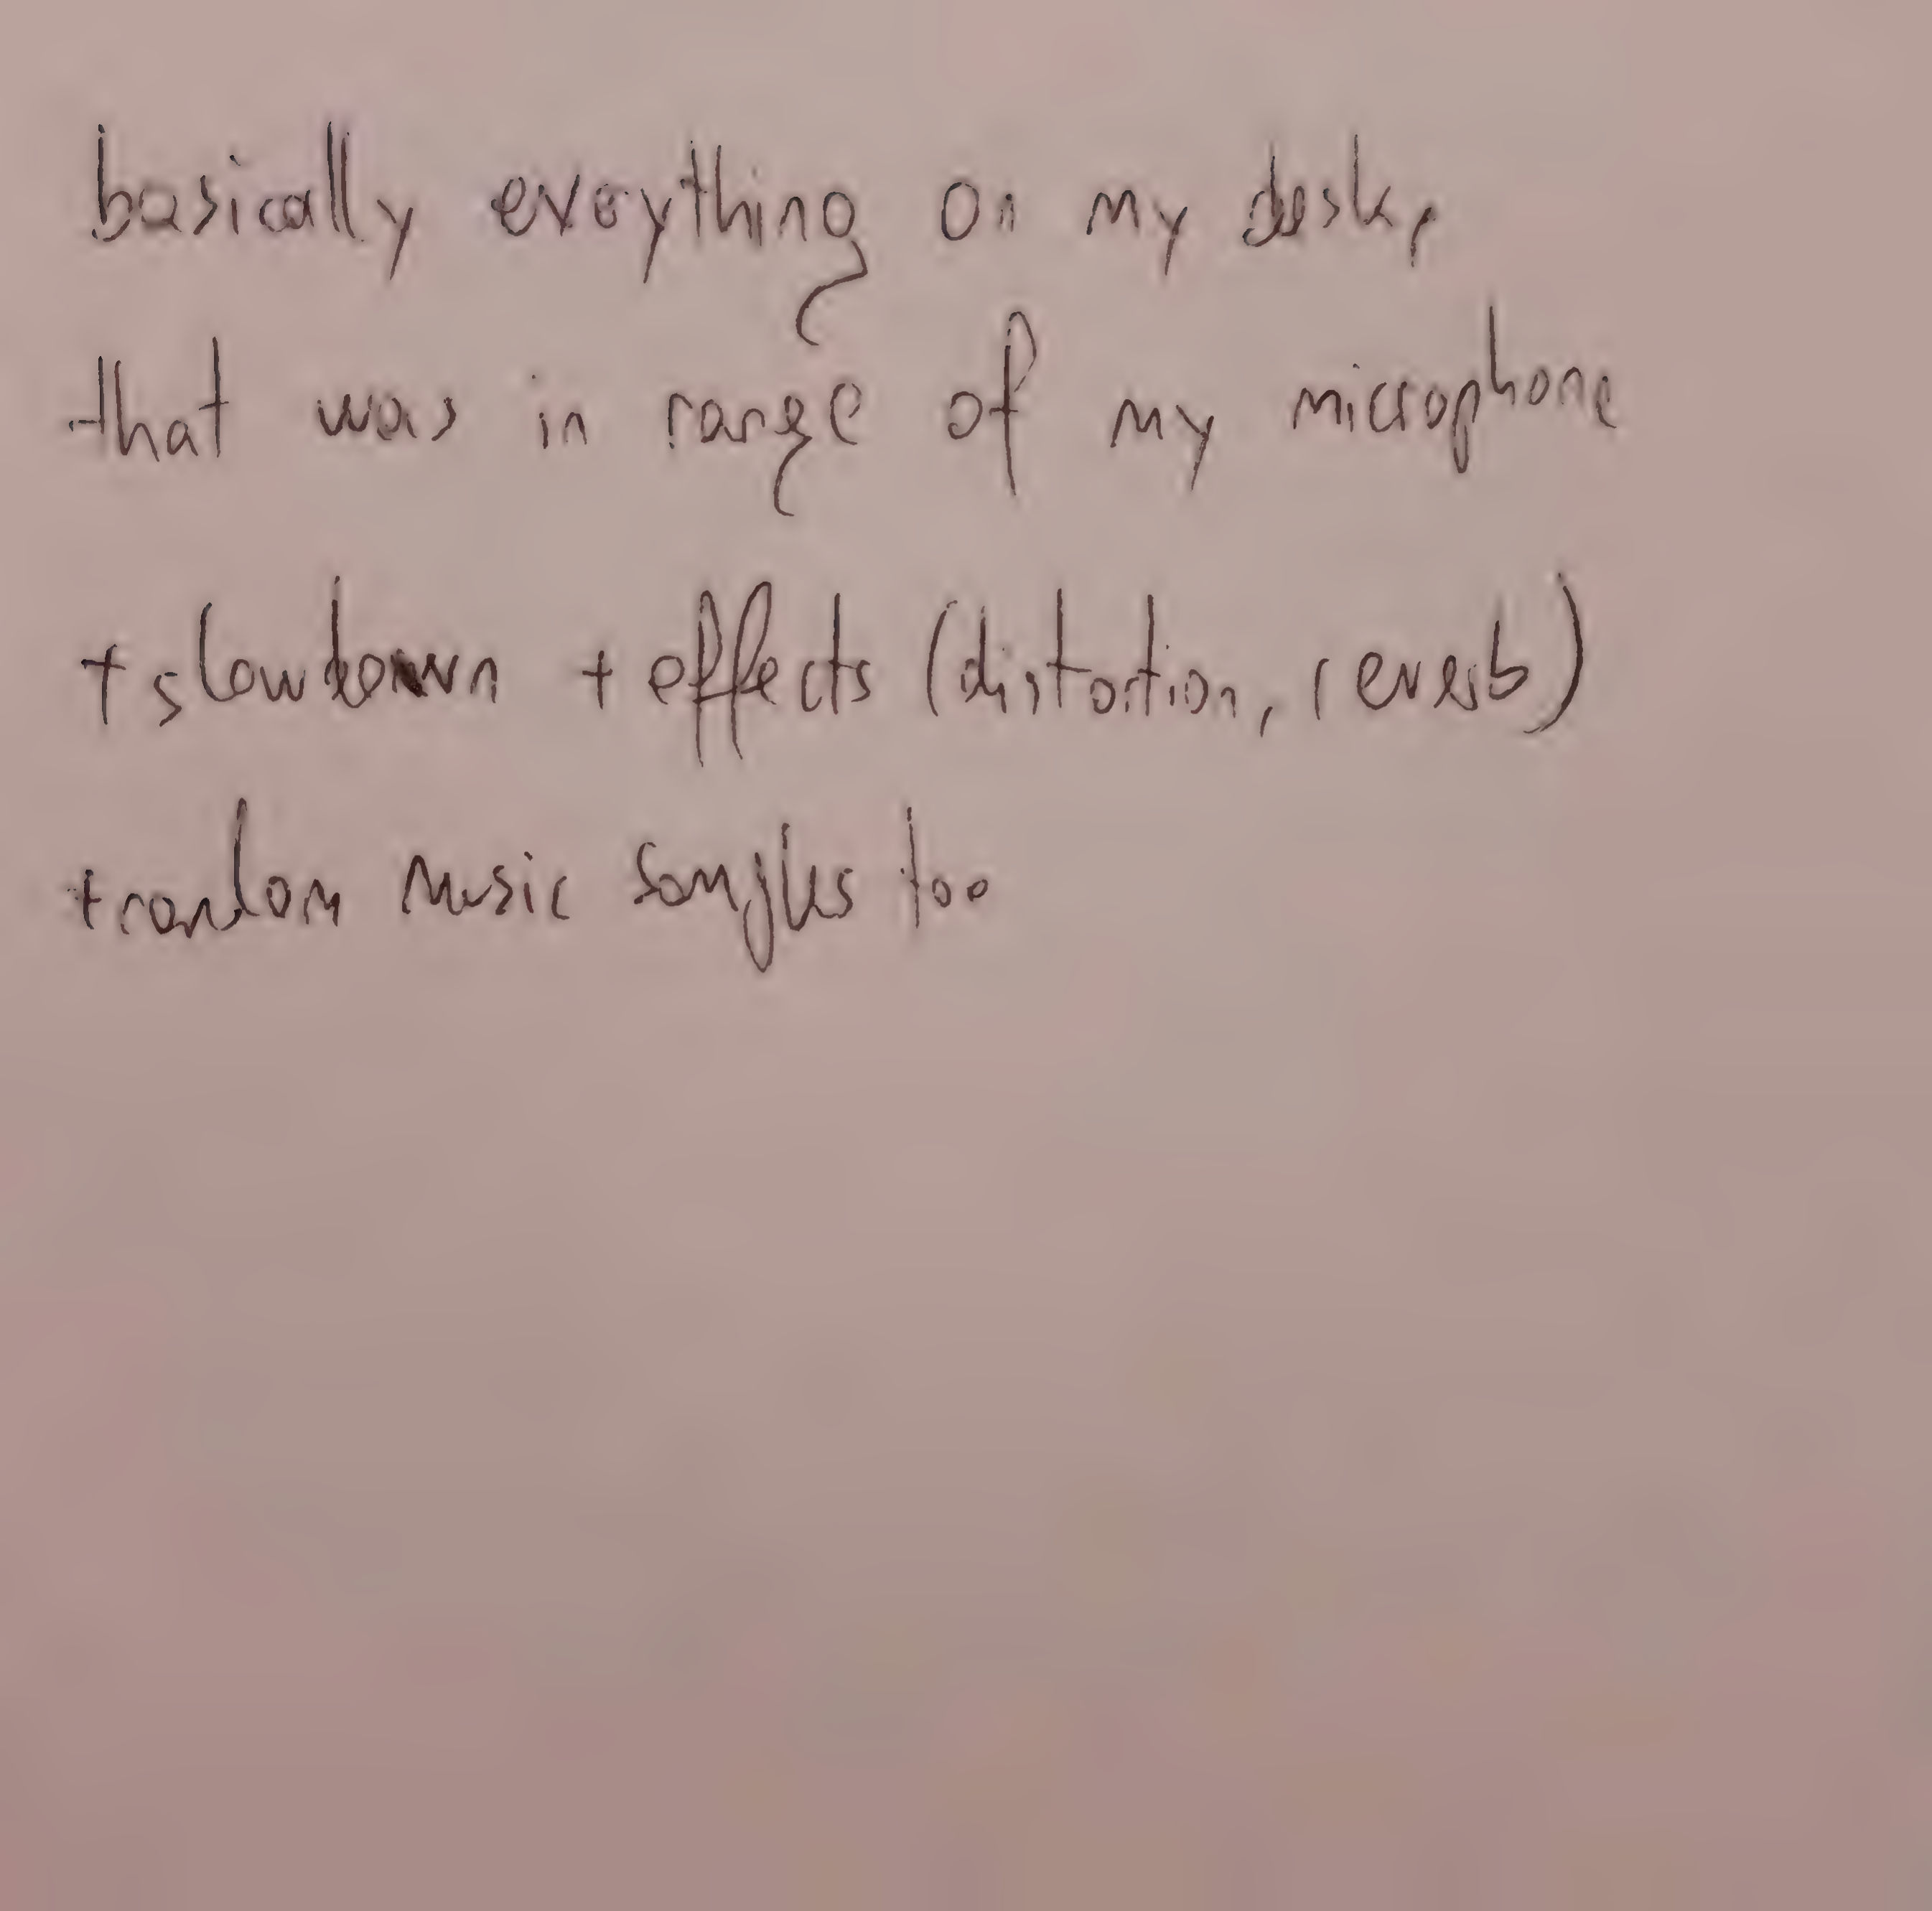 basically everything on my desk,
that was in range of my microphone
+ slowdown + effects (distortion, reverb)
+ random music samples too